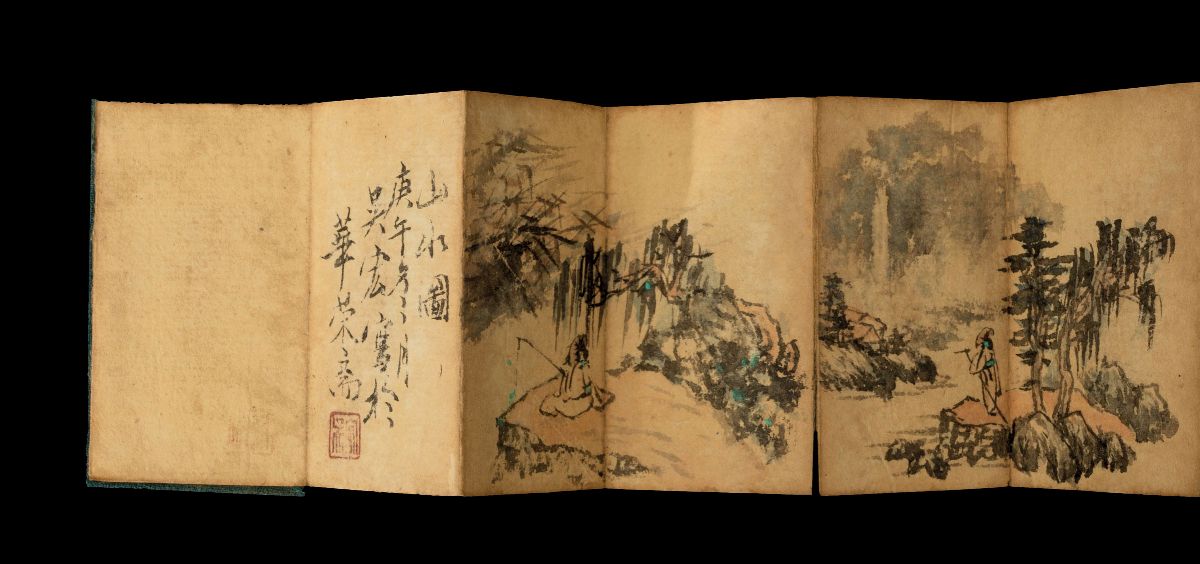 山水圖
庚午冬月
吳宏寫於
華榮齋